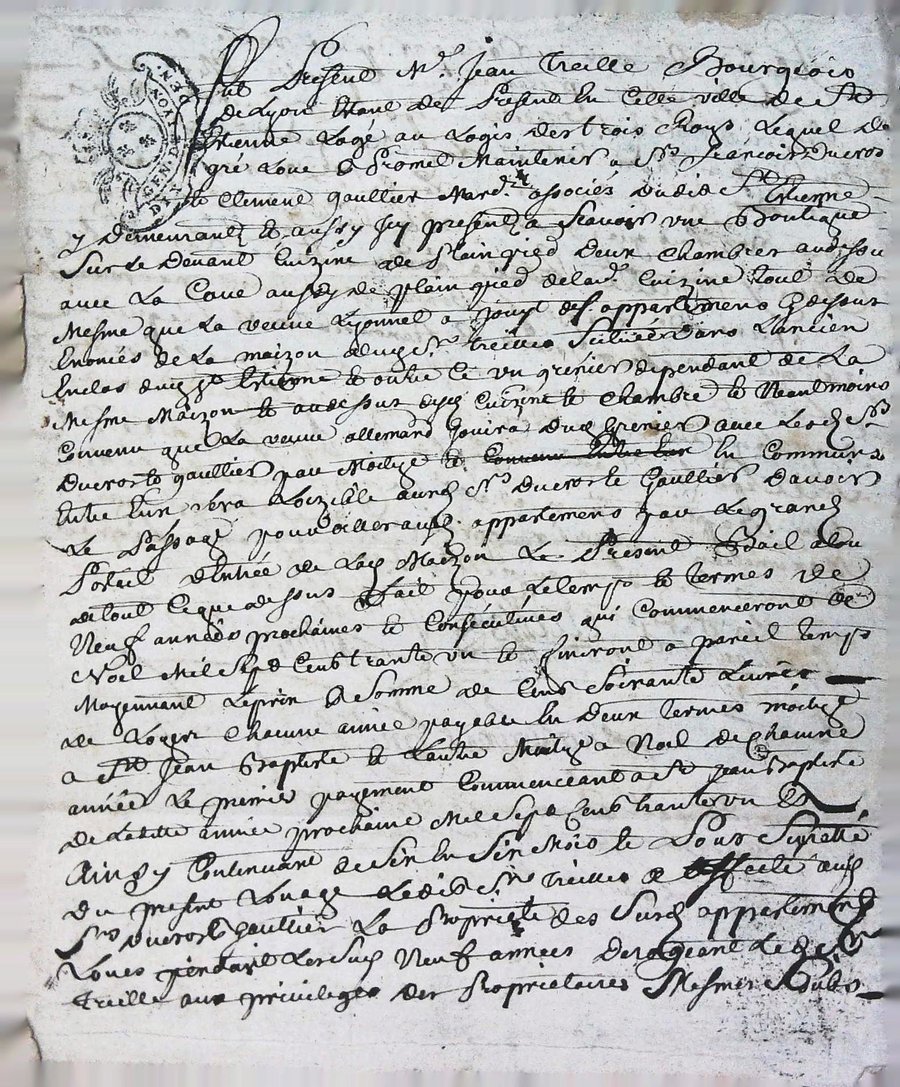 GEN. DE LYON
Fut Present Mr. Jean Treille Bourgeois
de Lyon Etant de Present En Cette ville de St
Etienne Logé au Logis des trois Roys Lequel de
gré Loue & Promet Maintenir a Srs françois Ducros
et Clement gaultier Mards. associés dudit St Etienne
y Demeurants Et aussy Icy presents a scavoir une Boutique
Sur Le Devant Cuizine de Plain pied Deux Chambres audessus
avec La Cave aussy de plain pied de lad. Cuizine tout de
Mesme que La veuve Lyonnel a jouy des. appartemens Cy dessus
Enoncés de La maizon dudit Sr. treille Scituée dans L'ancien
Enclos dudt St Etienne Et outre Ce un grenier dependant de La
Mesme Maizon Et au dessus desd Cuizine Et Chambre Et Neantmoins
Convenu que La veuve allemand Jouira dud Grenier avec Lesd Srs
Ducros Et gaultier par Moitye Et Convenu Entre Eux En Commun
Entre Eux Sera Loizible auxd Srs Ducros Et Gaultier D'avoir
Le Passage pour aller auxd. appartemens par Le grand
Portail d'Entrée de Lad Maizon Le Present Bail a Lou
de tout Ce que dessus Fait pour Le temps Et termes de
Neuf années prochaines Et Consécutives qui Commenceront de
Noel Mil Sept Cens trante un Et finiront a pareil temps
Moyennant Le prix & Somme de Cens Soixante Livres
de Loyer Chacune année payable En Deux termes moitye
a St Jean Baptiste Et Lautre Moitye a Noel de Chacune
année Le premier payement Commenceant a St Jean Baptiste
de Laditte année prochaine Mil Sept Cens trante un Et
Ainsy Continuant de Six En Six Mois Et Pour Seureté
Du present Louage Ledit Sr treille a affecté auxd
Srs Ducros Et gaultier La Propriete des Susd appartemens
Loués pendant Lesd Neuf années Derogeant Led Sr
Treille aux privileges des Proprietaires Mesmes